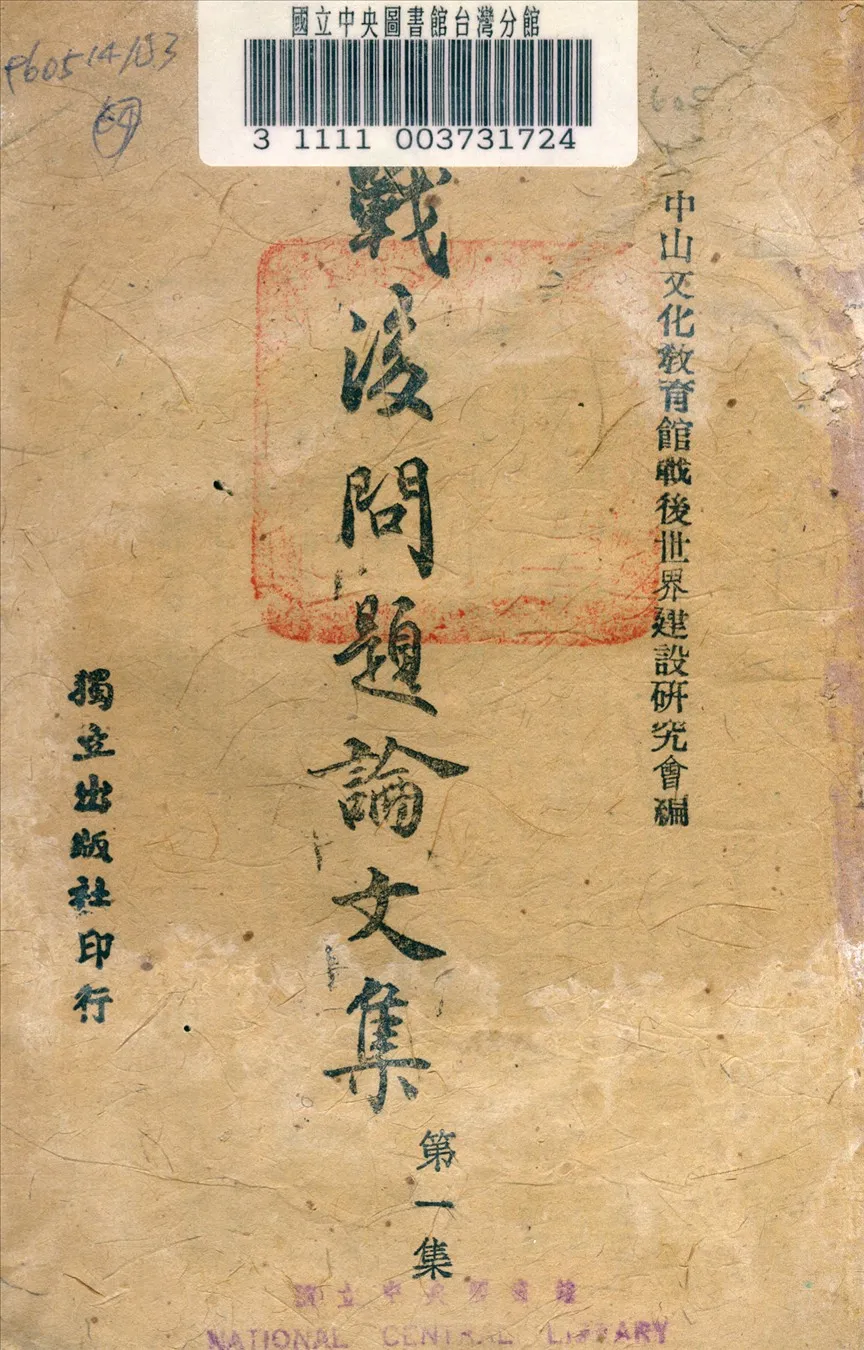 國立中央圖書館台灣分館
3 1111 003731724
605
中山文化教育館戰後世界建設研究會編
戰後問題論文集
第一集
獨立出版社印行
國立中央圖書館
NATIONAL CENTRAL LIBRARY